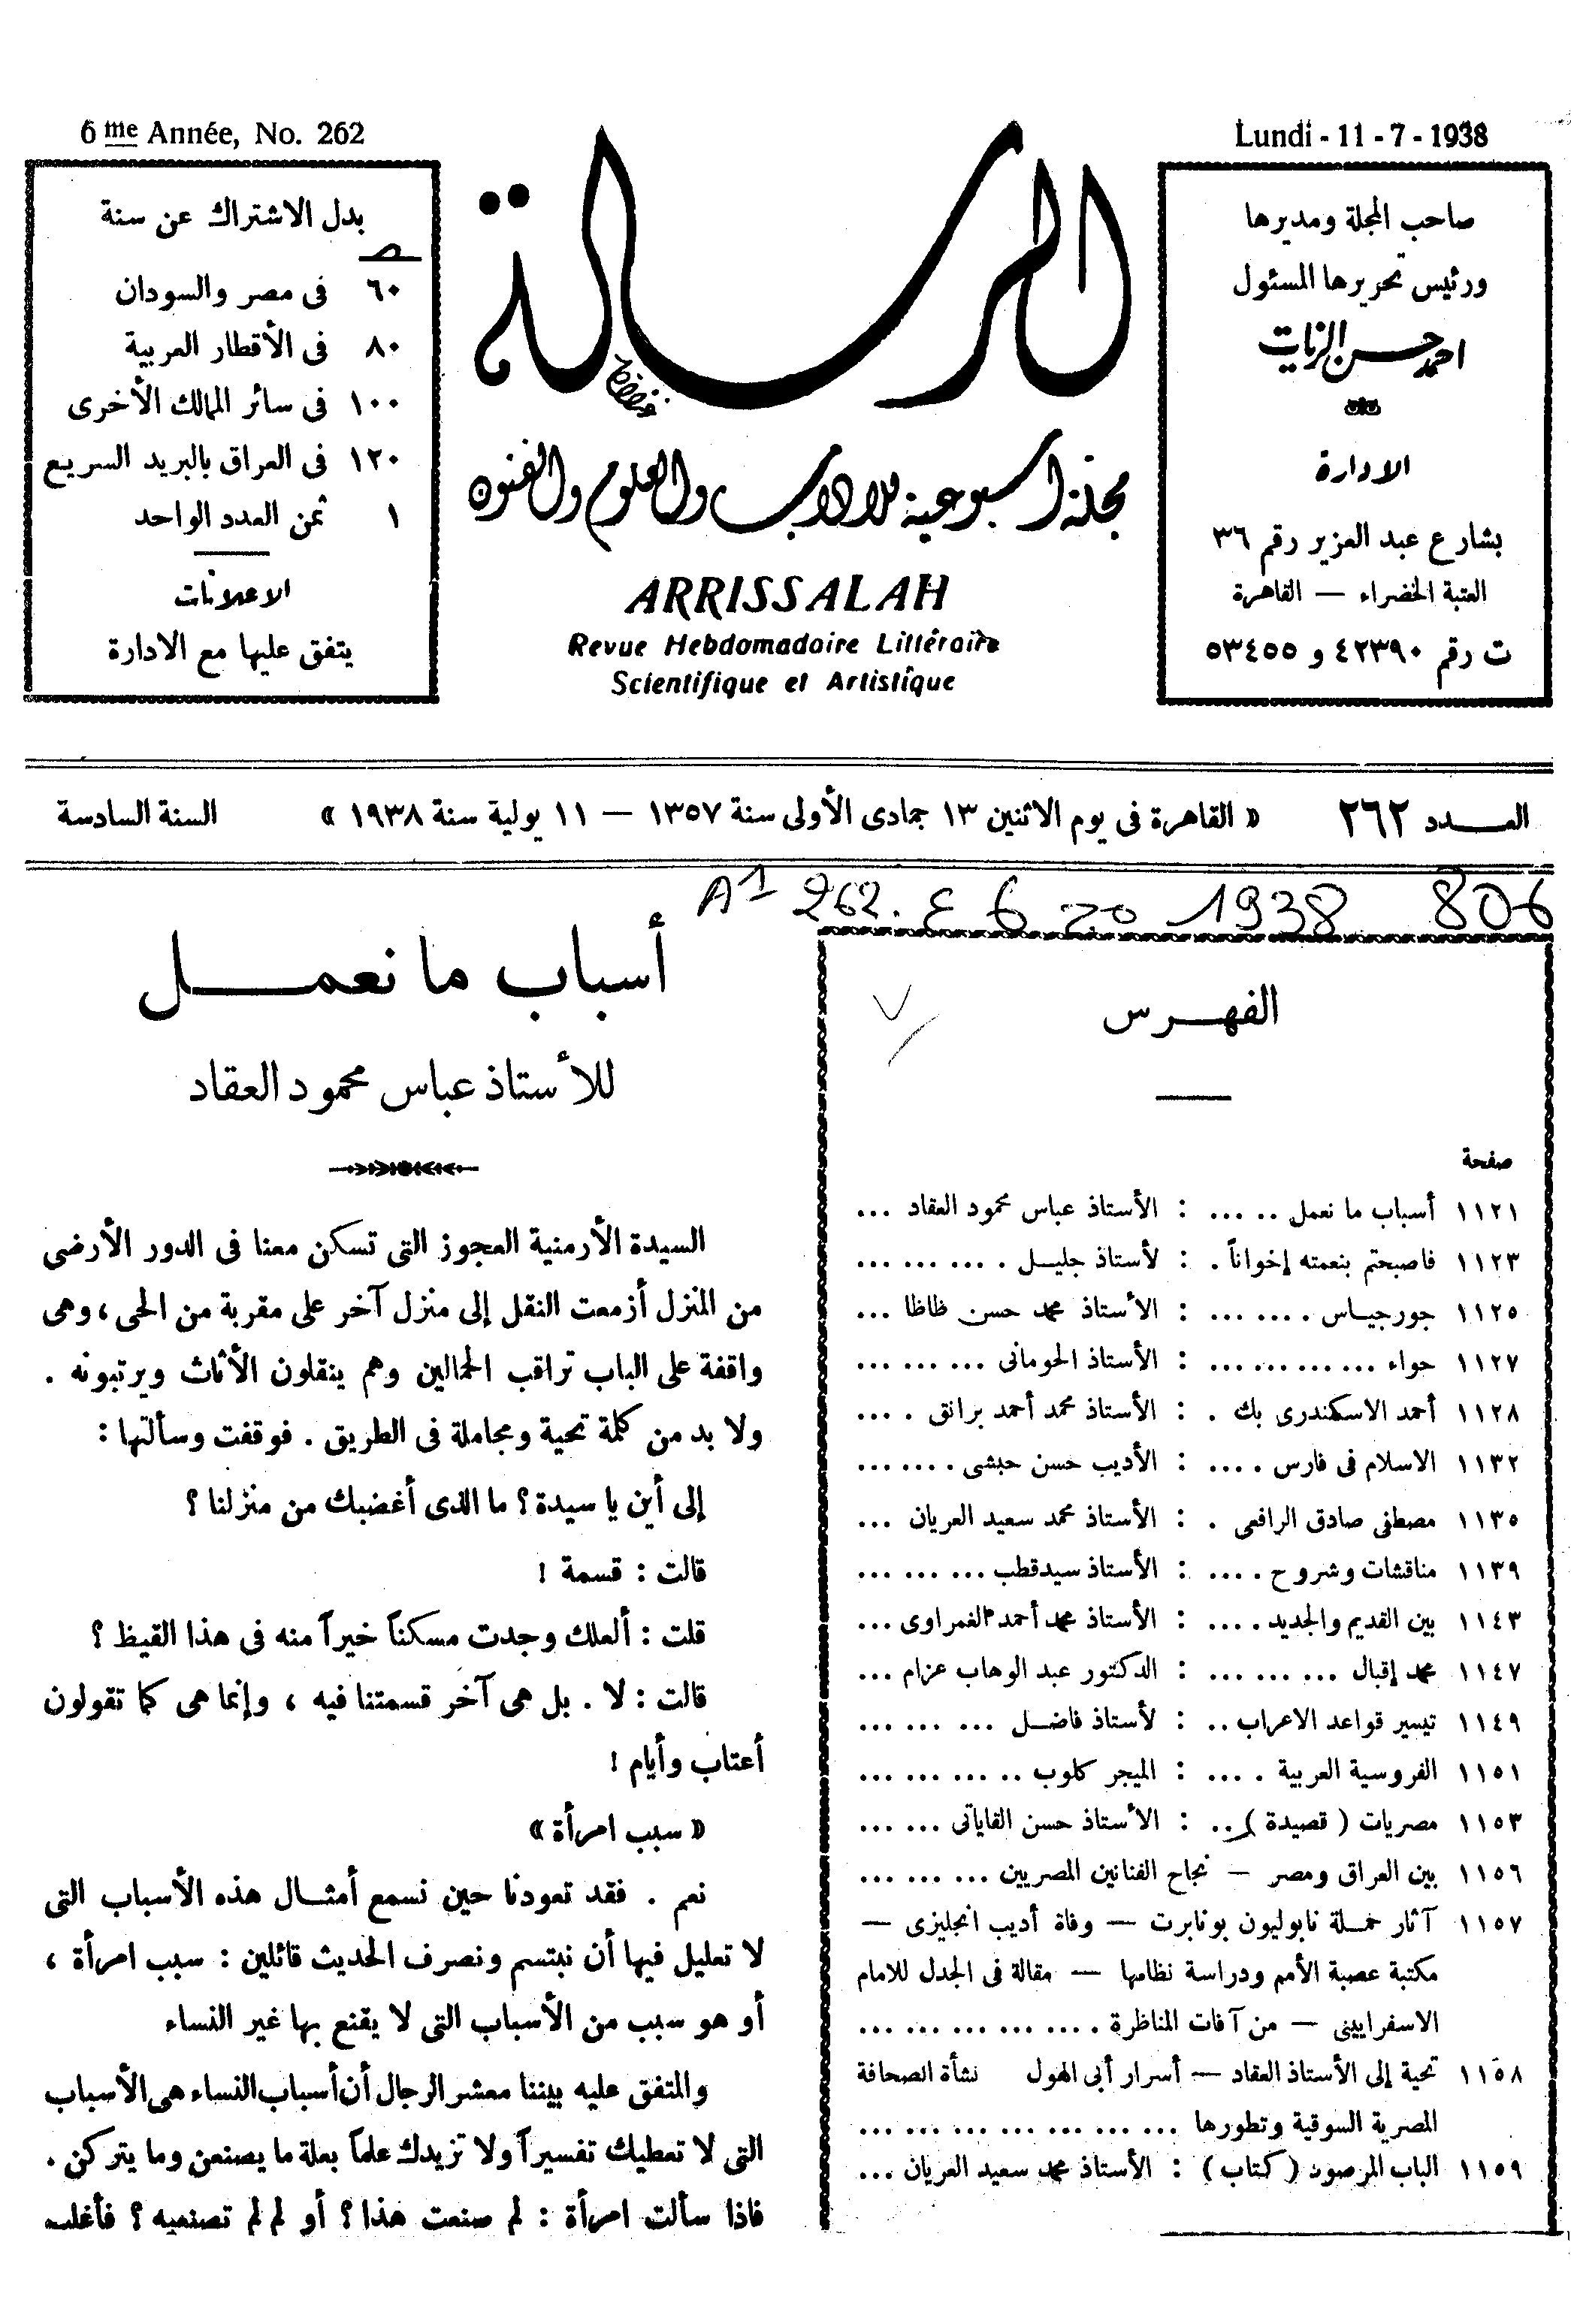 6 me Année, No. 262
Lundi - 11 - 7 - 1938
صاحب المجلة ومديرها
ورئيس تحريرها المسئول
احمد حسن الزيات
الادارة
بشارع عبد العزيز رقم ٣٦
العتبة الخضراء — القاهرة
ت رقم ٤٢٣٩٠ و ٥٣٤٥٥
الرسالة
مجلة أسبوعية للآداب والعلوم والفنون
ARRISSALAH
Revue Hebdomadaire Littéraire
Scientifique et Artistique
بدل الاشتراك عن سنة
٦٠ فى مصر والسودان
٨٠ فى الأقطار العربية
١٠٠ فى سائر الممالك الأخرى
١٢٠ فى العراق بالبريد السريع
١ ثمن العدد الواحد
الاعلانات
يتفق عليها مع الادارة
العـــدد ٢٦٢ « القاهرة فى يوم الاثنين ١٣ جمادى الأولى سنة ١٣٥٧ — ١١ يولية سنة ١٩٣٨ » السنة السادسة
1938 806
الفهـــرس
صفحة
١١٢١ أسباب ما نعمل .. ... : الأستاذ عباس محمود العقاد ...
١١٢٣ فاصبحتم بنعمته إخواناً . : لأستاذ جليـل . ... ... ...
١١٢٥ جورجيـاس . ... ... : الأستاذ محمد حسن ظاظا ...
١١٢٧ حواء ... ... ... ... : الأستاذ الحومانى ... ... ...
١١٢٨ أحمد الاسكندرى بك . : الأستاذ محمد أحمد برانق . ...
١١٣٢ الاسلام فى فارس . ... : الأديب حسن حبشى . ... ...
١١٣٥ مصطفى صادق الرافعى . : الأستاذ محمد سعيد العريان ...
١١٣٩ مناقشات وشروح . ... : الأستاذ سيد قطب ... ... ...
١١٤٣ بين القديم والجديد . ... : الأستاذ محمد أحمد الغمراوى ...
١١٤٧ محمد إقبال ... ... ... : الدكتور عبد الوهاب عزام ...
١١٤٩ تيسير قواعد الاعراب .. : لأستاذ فاضـل ... ... ...
١١٥١ الفروسية العربية . ... : الميجر كلوب .. ... ... ...
١١٥٣ مصريات ( قصيدة ) .. : الأستاذ حسن القاياتى ... ...
١١٥٦ بين العراق ومصر — نجاح الفنانين المصريين ... ... ...
١١٥٧ آثار حمـلة نابوليون بونابرت — وفاة أديب انجليزى —
مكتبة عصبة الأمم ودراسة نظامها — مقالة فى الجدل للامام
الاسفرايينى — من آفات المناظرة . ... ... ... ... ...
١١٥٨ تحية إلى الأستاذ العقاد — أسرار أبى الهول نشأة الصحافة
المصرية السوقية وتطورها ... ... ... ... ... ... ...
١١٥٩ الباب المرصود ( كتاب ) : الأستاذ محمد سعيد العريان ...
أسباب ما نعمـــل
للأستاذ عباس محمود العقاد
السيدة الأرمنية العجوز التى تسكن معنا فى الدور الأرضى
من المنزل أزمعت النقل إلى منزل آخر على مقربة من الحى ، وهى
واقفة على الباب تراقب الحمالين وهم ينقلون الأثاث ويرتبونه .
ولا بد من كلمة تحية ومجاملة فى الطريق . فوقفت وسألتها :
إلى أين يا سيدة ؟ ما الذى أغضبك من منزلنا ؟
قالت : قسمة !
قلت : ألعلك وجدت مسكناً خيراً منه فى هذا القيظ ؟
قالت : لا . بل هى آخر قسمتنا فيه ، وإنما هى كما تقولون
أعتاب وأيام !
« سبب امرأة »
نعم . فقد تعودنا حين نسمع أمثـال هذه الأسباب التى
لا تعليل فيها أن نبتسم ونصرف الحديث قائلين : سبب امرأة ،
أو هو سبب من الأسباب التى لا يقنع بها غير النساء
والمتفق عليه بيننا معشر الرجال أن أسباب النساء هى الأسباب
التى لا تعطيك تفسيراً ولا تزيدك علماً بعلة ما يصنعن وما يتركن .
فاذا سألت امرأة : لم صنعت هذا ؟ أو لم لم تصنعيه ؟ فأغلب